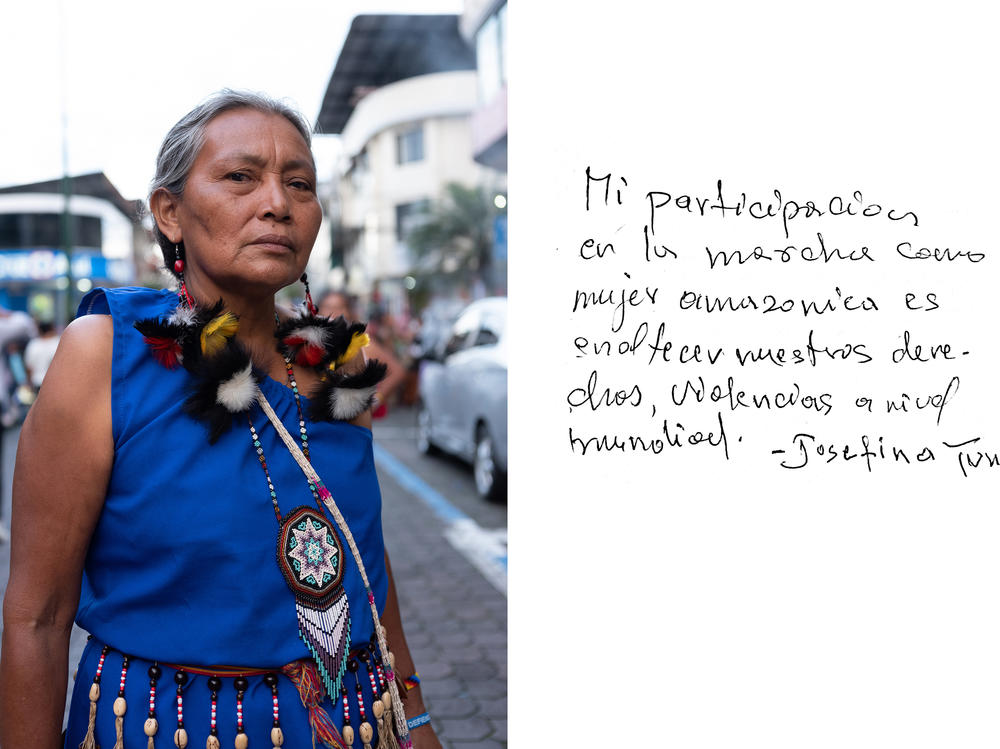 Mi participacion
en la marcha como
mujer amazonica es
enaltecer nuestros dere-
chos, violencias a nivel
mundial. -Josefina Tun
DEFEN